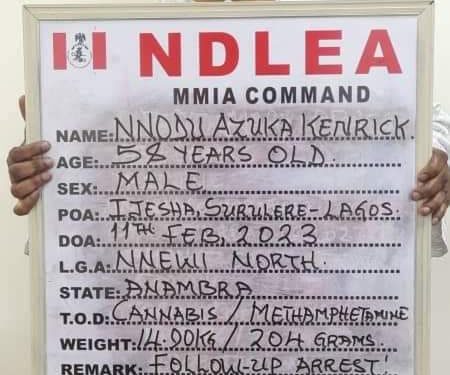 NDLEA
MMIA COMMAND
NAME: NNODU AZUKA KENRICK.
AGE: 58 YEARS OLD.
SEX: MALE
POA: IJESHA, SURULERE-LAGOS.
DOA: 11TH FEB, 2023
L.G.A: NNEWI NORTH.
STATE: ANAMBRA
T.O.D: CANNABIS / METHAMPHETAMINE
WEIGHT: 14.00KG / 204 GRAMS.
REMARK: FOLLOW-UP ARREST!